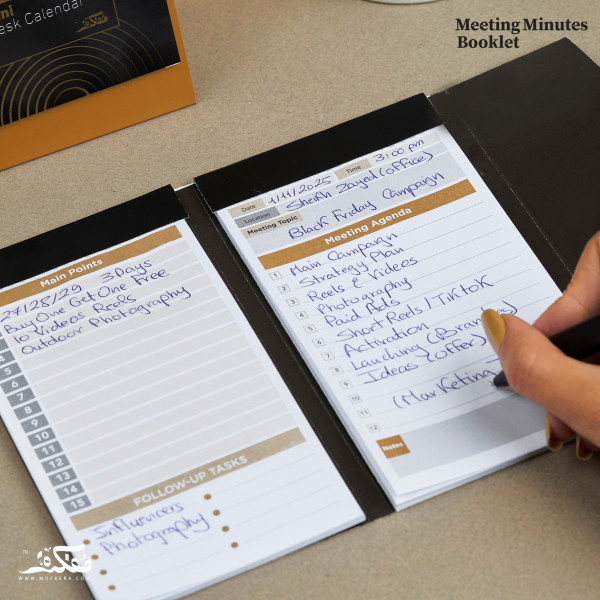 ni
esk Calendar
Meeting Minutes
Booklet
Main Points
27/28/29 3 Days
Buy One Get One Free
10 Videos Reels
Outdoor Photography
4
5
6
7
8
9
10
11
12
13
14
15
FOLLOW-UP TASKS
Influencers
Photography
Date 1/11/2025 Time 3:00 pm
Location Sheikh Zayed (office)
Meeting Topic Black Friday Campaign
Meeting Agenda
1 Main Campaign
2 Strategy Plan
3 Reels & Videos
4 Photography
5 Paid Ads
6 Short Reels / Tiktok
7 Activation
8 Lauching (Brandes)
9 Ideas (offer)
10 (Marketing
11
12
Notes
مفكرة
TM
WWW.MOFKERA.COM